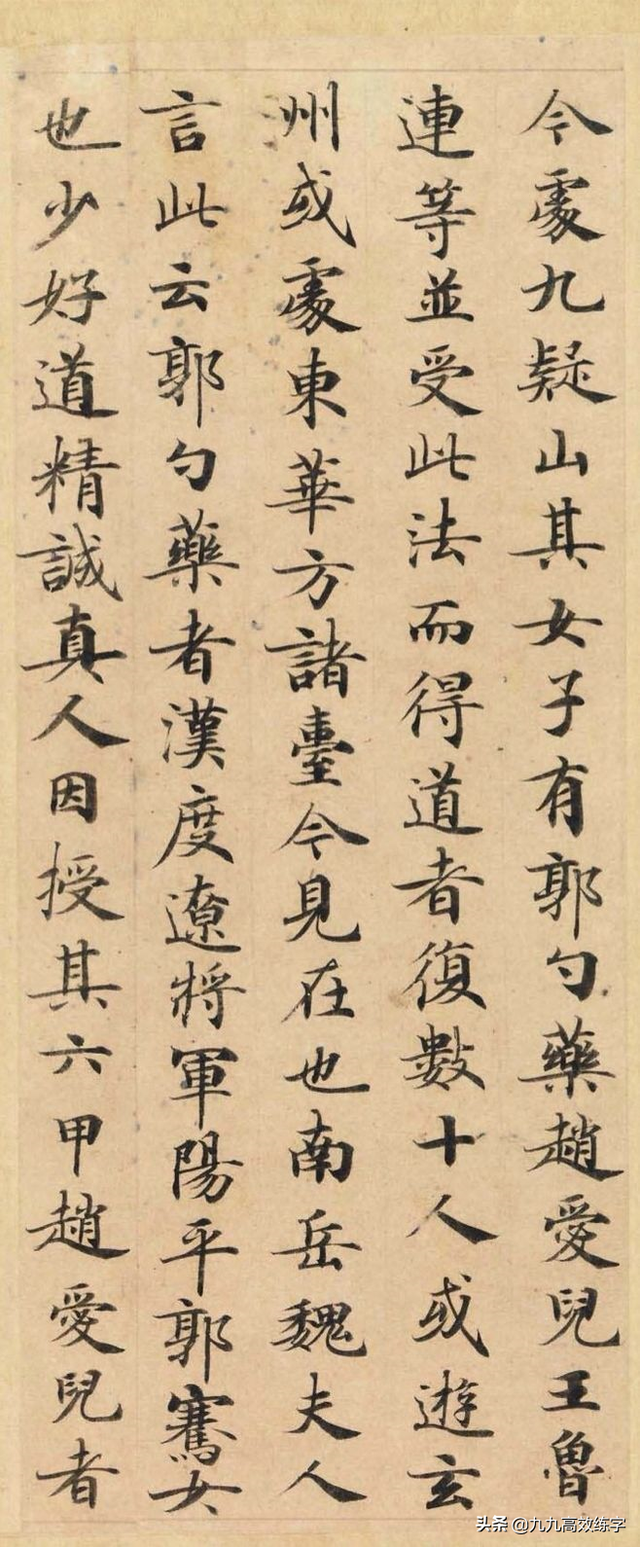 今處九疑山其女子有郭勺藥趙愛兒王魯
連等並受此法而得道者復數十人或遊玄
州或處東華方諸臺今見在也南岳魏夫人
言此云郭勺藥者漢度遼將軍陽平郭騫女
也少好道精誠真人因授其六甲趙愛兒者
头条 @九九高效练字